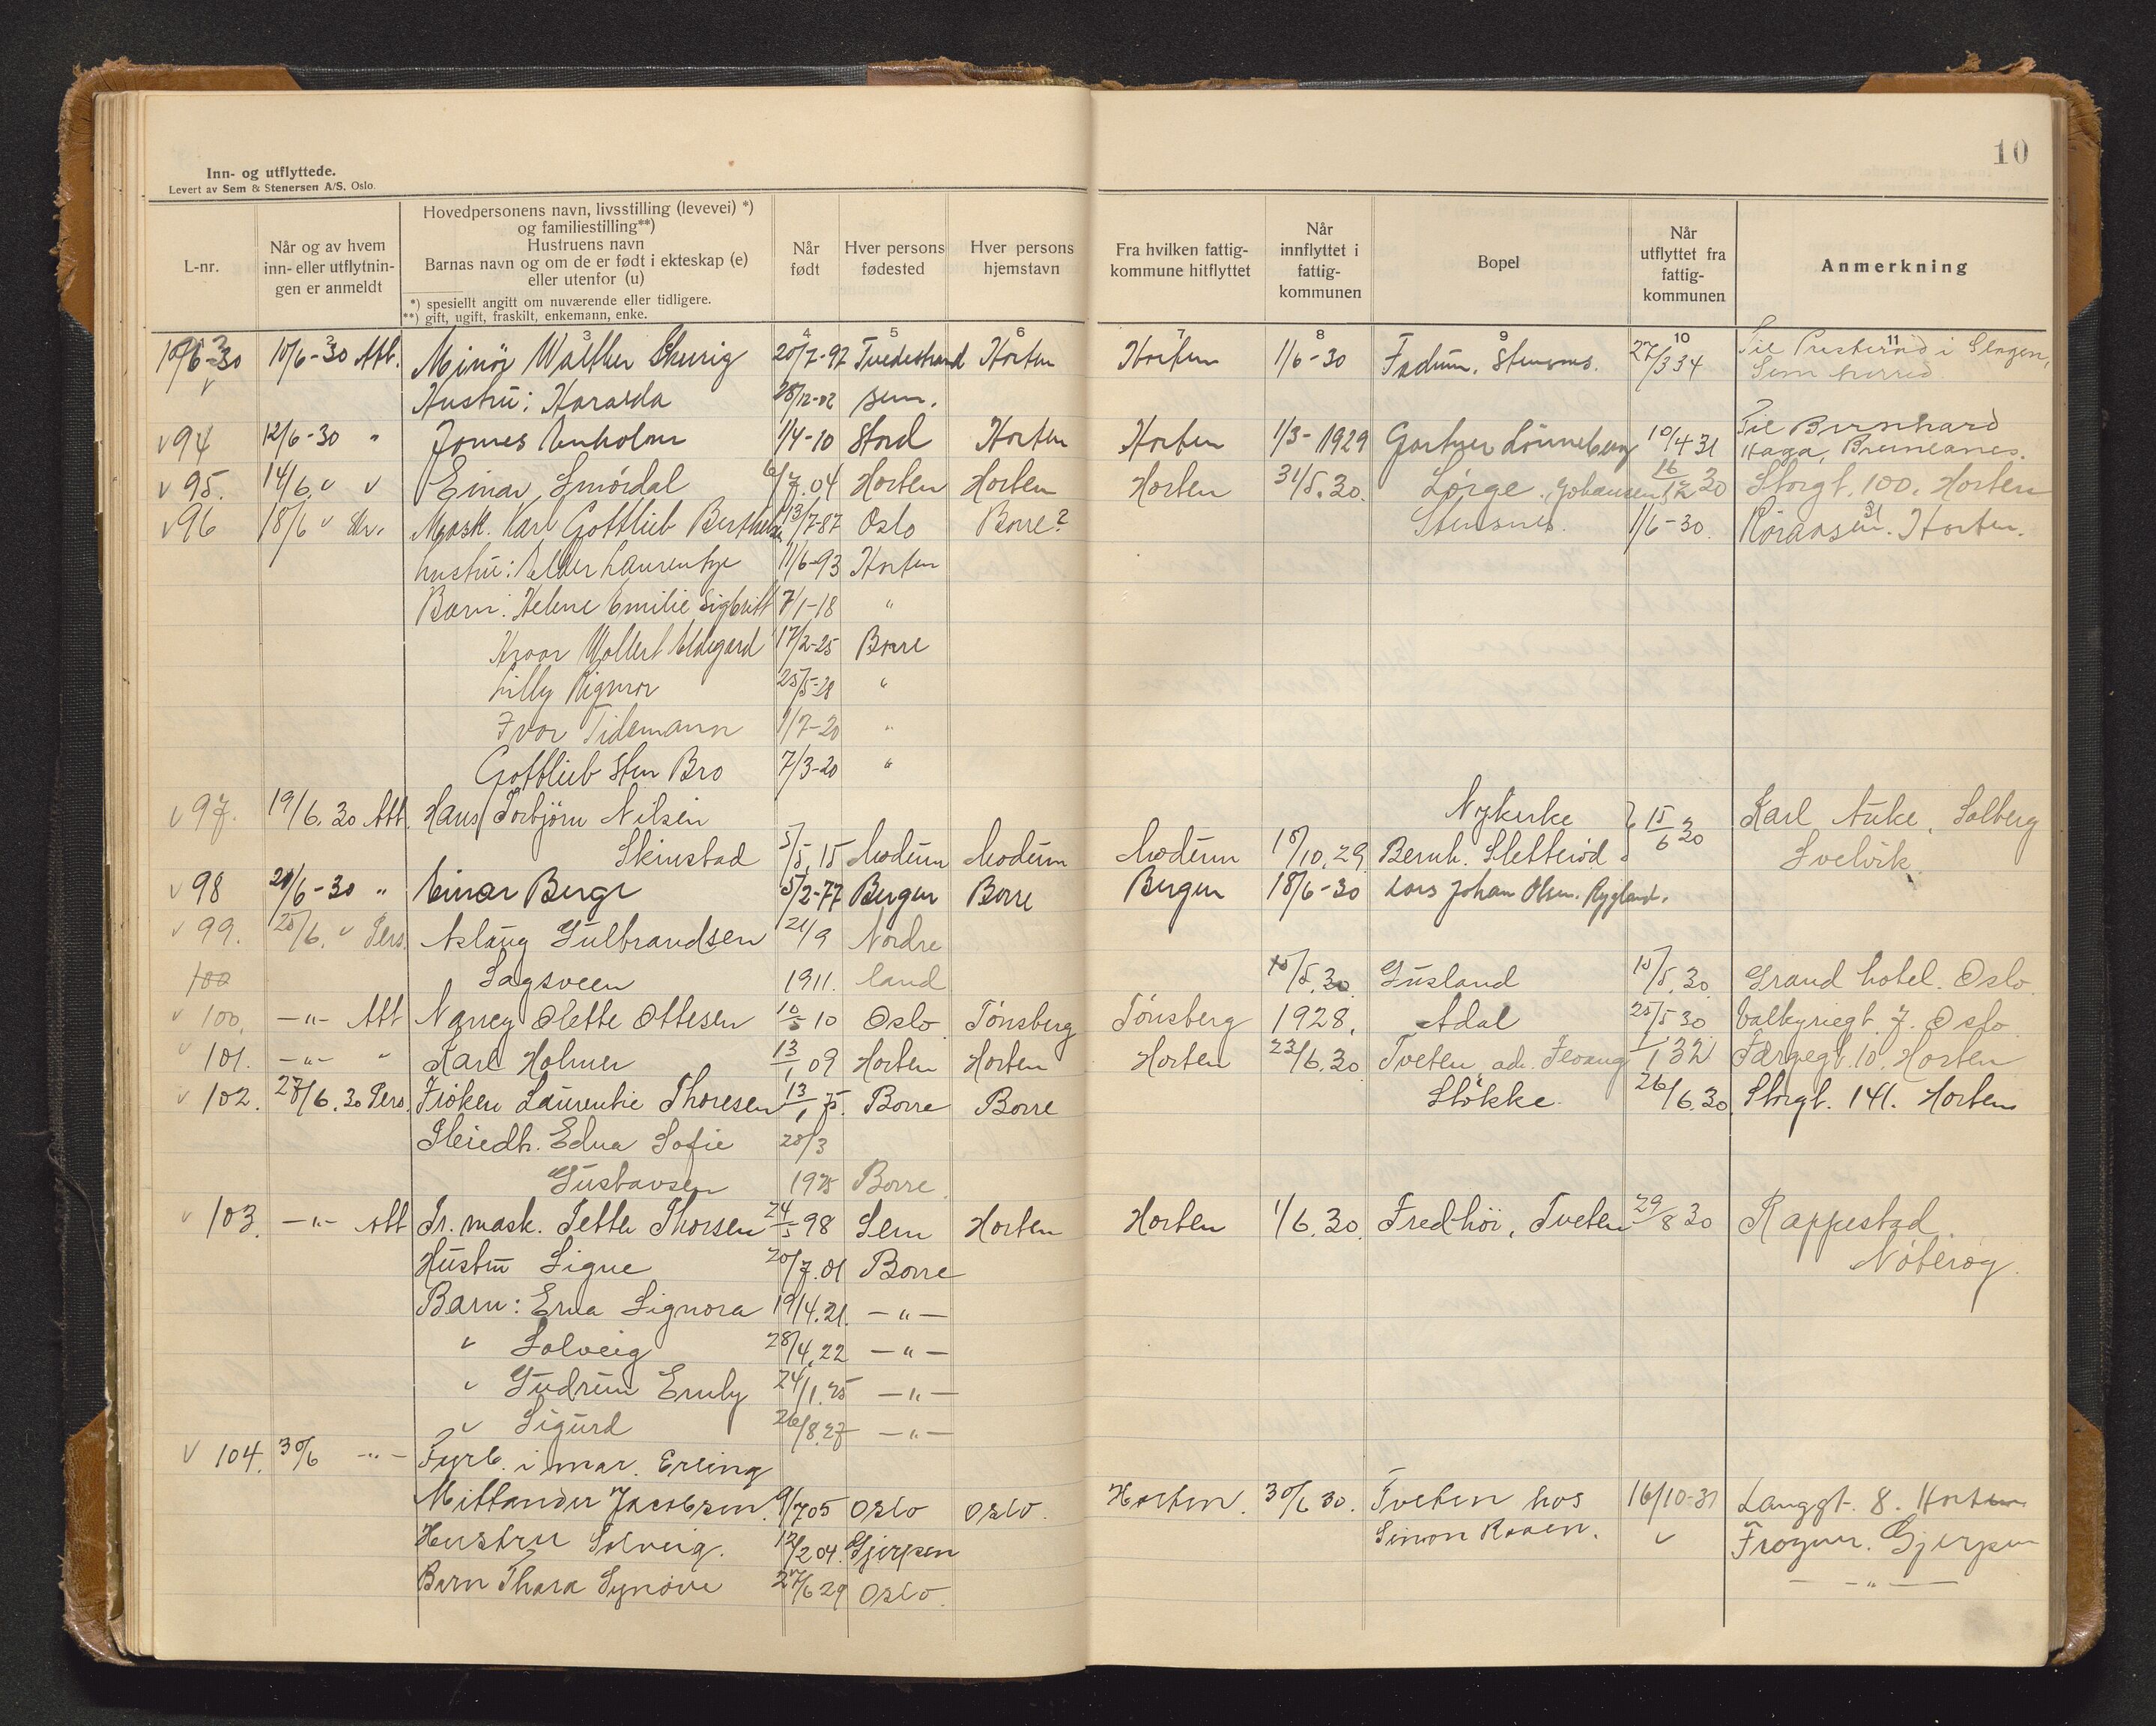 10
Inn- og utflyttede.
Levert av Sem & Stenersen A/S, Oslo.
L-nr.
Når og av hvem inn- eller utflytnin-gen er anmeldt
Hovedpersonens navn, livsstilling (levevei) *)
og familiestilling**)
Hustruens navn
Barnas navn og om de er født i ekteskap (e)
eller utenfor (u)
*) spesiellt angitt om nuværende eller tidligere.
**) gift, ugift, fraskilt, enkemann, enke.
Når født
Hver persons fødested
Hver persons hjemstavn
Fra hvilken fattig-kommune hitflyttet
Når innflyttet i fattig-kommunen
Bopel
Når utflyttet fra fattig-kommunen
Anmerkning
2 3 4 5 6 7 8 9 10 11
10/6-30 10/6-30 Att. Minör Walther 20/7-97 Tvedestrand Horten Horten 1/6-30 Fadum, Stensnes. 27/3 34 Til Presterød i Slagen,
Hustru: Haralda 28/12-02 Sem. Sem herred
v 94 12/6-30 " 1/4-10 Stord Horten Horten 1/3-1929 Gartner Lönneberg 10/4 31 Til Bernhard
Haga,
v 95. 14/6. v v Einar Smördal 6/7.04 Horten Horten Horten 31/5.30. Lørge. Johansen 16/12 30 Storgt. 100. Horten
v 96 18/6 v Skr. Mask. Karl Gottlieb 13/7-87 Oslo Borre? Stensnes. 1/6-30. Röråsen. 31 Horten.
hustru: 11/6-93 Horten
Barn: Helene Emilie Sigbritt 7/1-18 "
17/2-25 Borre
Lilly Rigmor 25/5-28 "
Ivar Tidemann 1/7-20 "
Gottlieb Sten Bro 7/3-20 "
v 97. 19/6.30 Att. Hans Torbjörn Nilsen Nykirke } 15/6 30 Karl Auke, Solberg
Skinstad 5/5.15 Modum Modum Modum 18/10.29. Bernh. Sletterød Svelvik
v 98 20/6-30 " Einar Berge 5/2-77 Bergen Borre Bergen 18/6-30 Lars Johan Olsen. Rygland.
v 99. 25/6. v Pers. Aslaug Gulbrandsen 21/9 Nordre
100 Sagsveen 1911. land 15/5.30. Gusland 15/5.30. Grand hotel. Oslo.
v 100. -"- Att Nancy Olette Ottesen 10/5 10 Oslo Tönsberg Tönsberg 1928. Adal 25/5 30 Valkyriegt. 7. Oslo
v 101. -"- " Karl Holmer 13/1 09 Horten Horten Horten 23/6.30 Tveten, 1/1 32 Færgegt. 10. Horten
v 102. 27/6.30 Pers. Fröken Laurentie Thoresen 13/1 75. Borre Borre Stokke 26/6.30 Storgt. 141. Horten
Pleiedtr. Edna Sofie 28/3
Gustavsen 1925 Borre.
v 103. -"- Att Fr. mask. Petter Thorsen 24/5 98 Sem Horten Horten 1/6.30. Fredhöi, Tveten 29/8 30 Rappestad
Hustru Signe 20/7.01 Borre Nöterøy.
Barn: Erna Signora 19/4.21. -"-
v Solveig 28/4.22 -"-
v Gudrun Emly 24/1.25 -"-
v Sigurd 26/8.27 -"-
v 104. 30/6 -"- Fyrb. i mar. Erling
Mittander Jacobsen. 9/7 05 Oslo Oslo. Horten. 30/6 30. Tveten hos 16/10-31 Langgt. 8. Horten
Hustru Solveig. 12/2 04. Gjerpen Simon Raaen. v Frogner. Gjerpen
Barn Thora Synöve 27/6 29 Oslo. -"-